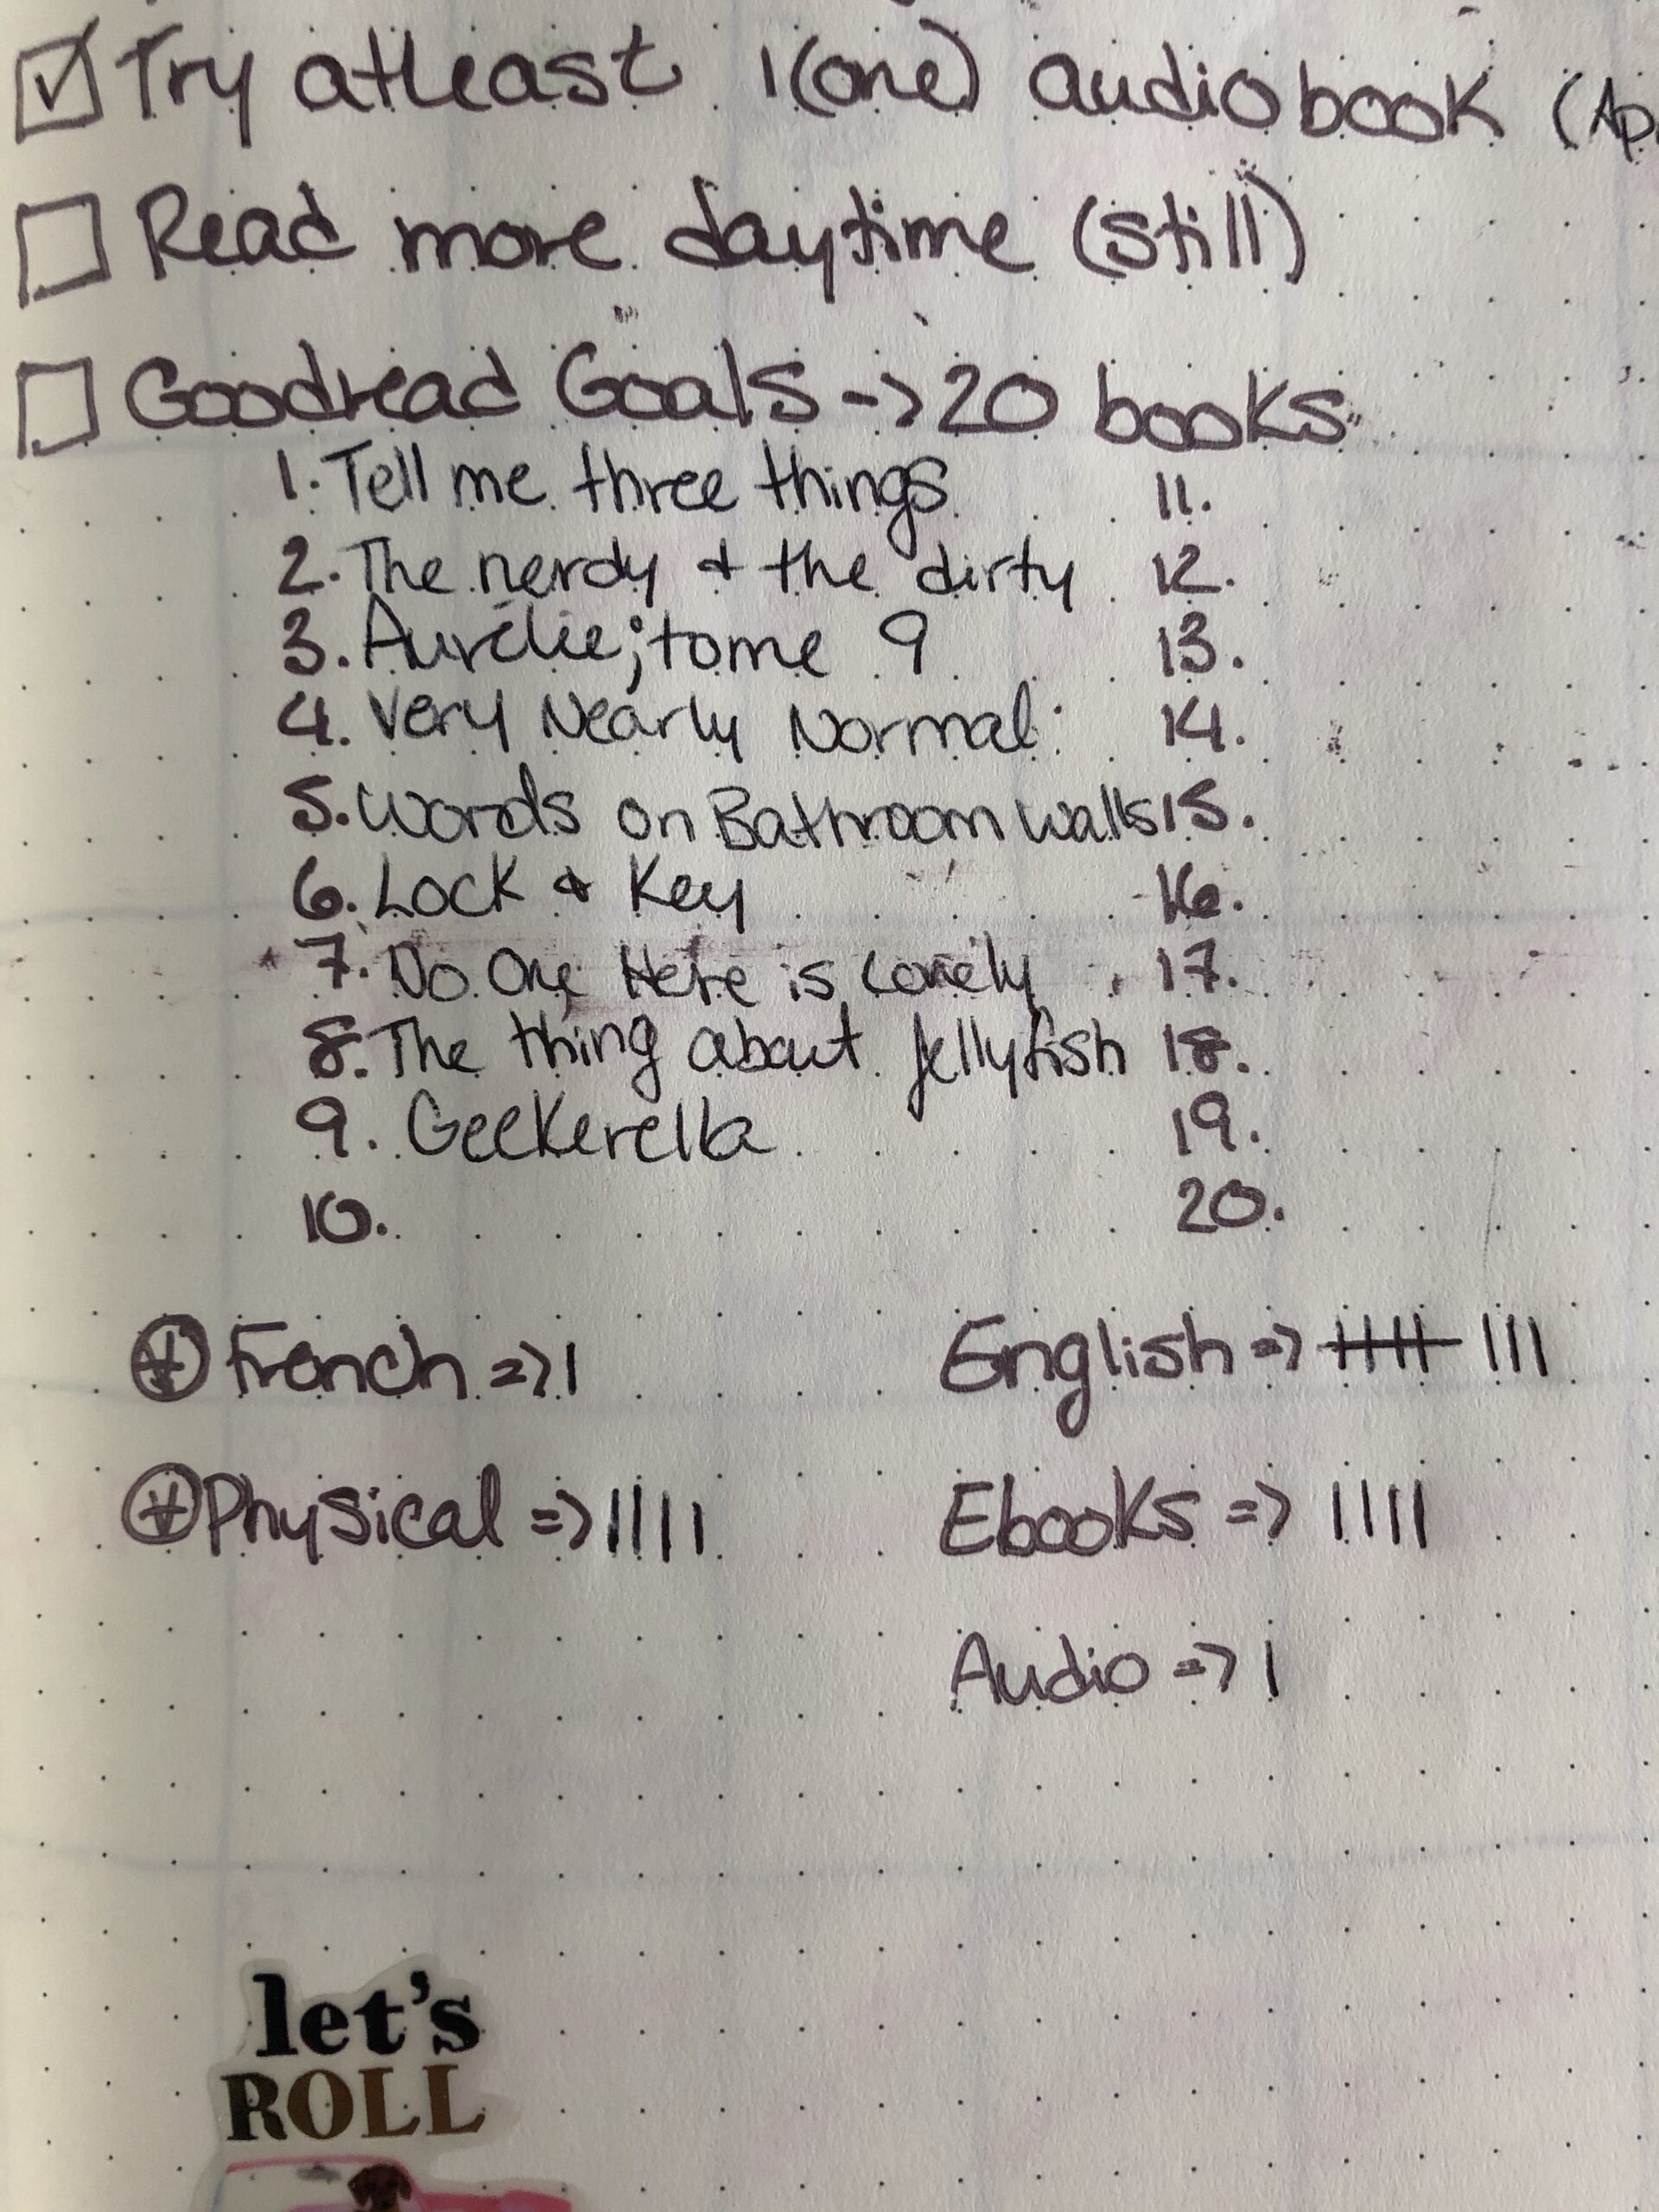 ☑ Try atleast 1(one) audiobook (Ap
☐ Read more daytime (still)
☐ Goodread Goals -> 20 books
1. Tell me three things 11.
2. The nerdy & the dirty 12.
3. Aurélie; tome 9 13.
4. Very Nearly Normal 14.
5. Words on Bathroom Walls 15.
6. Lock & Key 16.
7. No One Here is Lonely 17.
8. The thing about jellyfish 18.
9. Geekerella 19.
10. 20.
French => | English => |||| |||
Physical => |||| Ebooks => ||||
Audio => |
let's
ROLL